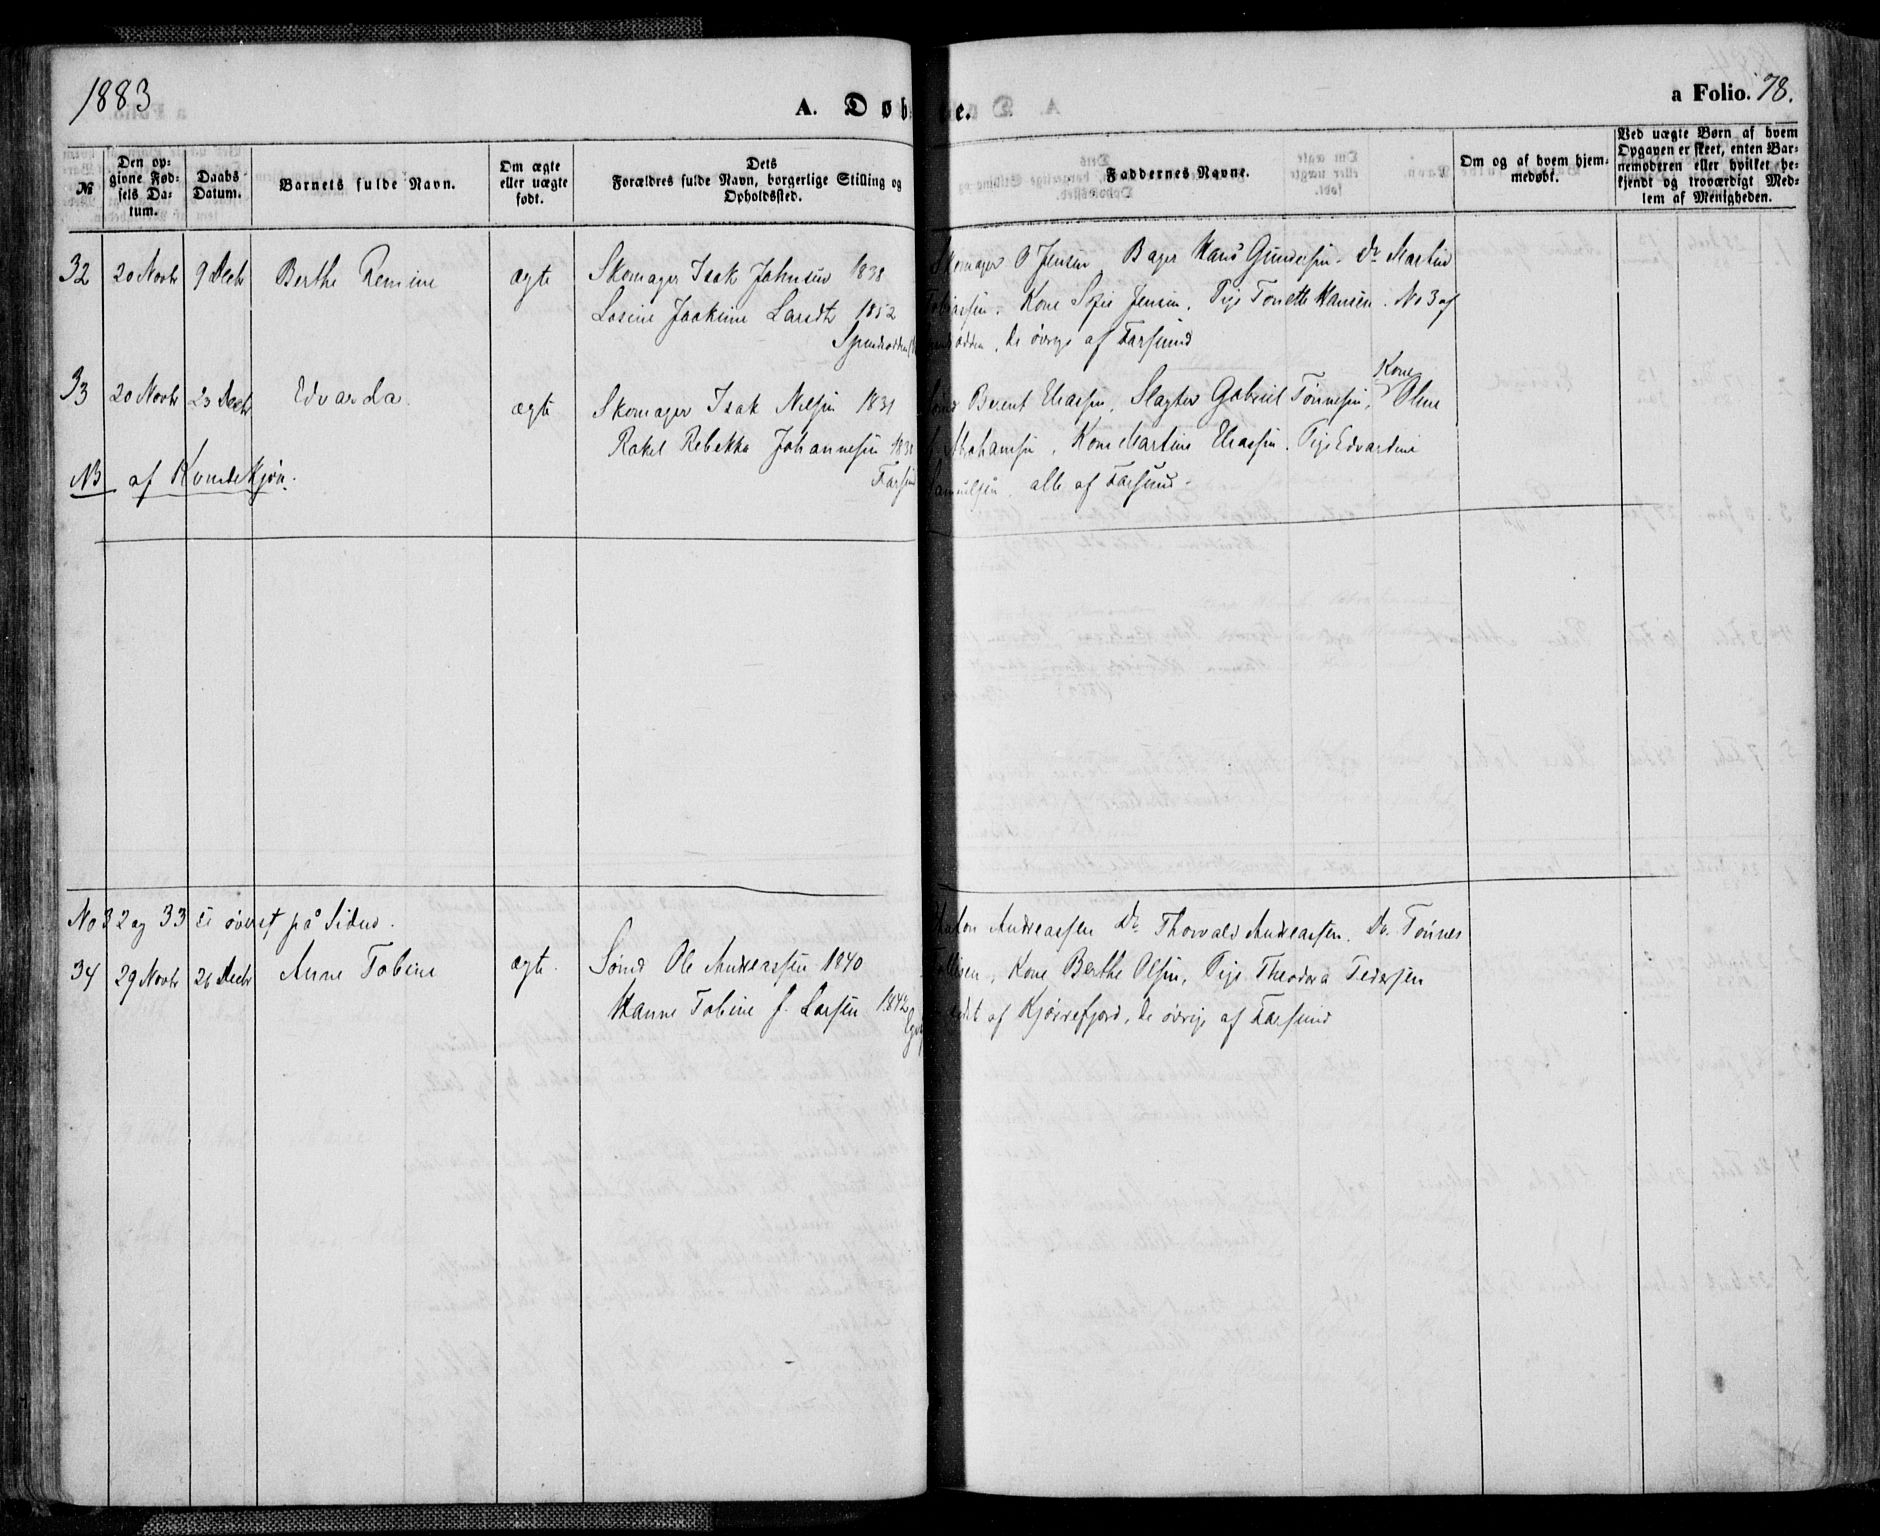 1883
A. Døb
e.
a Folio. 78.
№
Den op-
givne Fød-
sels Da-
tum.
Daabs
Datum.
Barnets fulde Navn.
Om ægte
eller uægte
født.
Dets
Forældres fulde Navn, borgerlige Stilling og
Opholdssted.
Faddernes Navne.
Om og af hvem hjem-
medøbt.
Ved uægte Børn af hvem
Opgaven er skeet, enten Bar-
nemoderen eller hvilket be-
kjendt og troværdigt Med-
lem af Menigheden.
32 20 Novbr 9 Decbr Berthe Remine ægte Skomager Isak Johnsen 1838 Skomager O Jensen Bager Hans Gundersen. Do Martin
Losine Joakime Larsdtr 1852 Tobiassen. Kone Sofie Jensen. Pige Tonette Hansen. No 3 af
de øvrige af Farsund
33 20 Novbr 23 Decbr Edvarda ægte Skomager Isak Nilsen 1831 Berent Eliassen, Slagter Gabriel Tønnesen, Kone Oline
Rakel Rebekka Johannesen Abrahamsen, Kone Martine Eliassen. Pige Edvardine
NB af Kvindekjøn. Farsund Samuelsen, alle af Farsund.
No 32 og 33 se øverst på Siden.
34 29 Novbr 26 Decbr Anne Tobine ægte. Sømd Ole Andreassen 1840 Andreassen Do Thorvald Andreassen. Do Tønnes
Hanne Tobine f. Larsen 1842 Kone Berthe Olsen, Pige Theodora Pedersen
af Kjørrefjord, de øvrige af Farsund